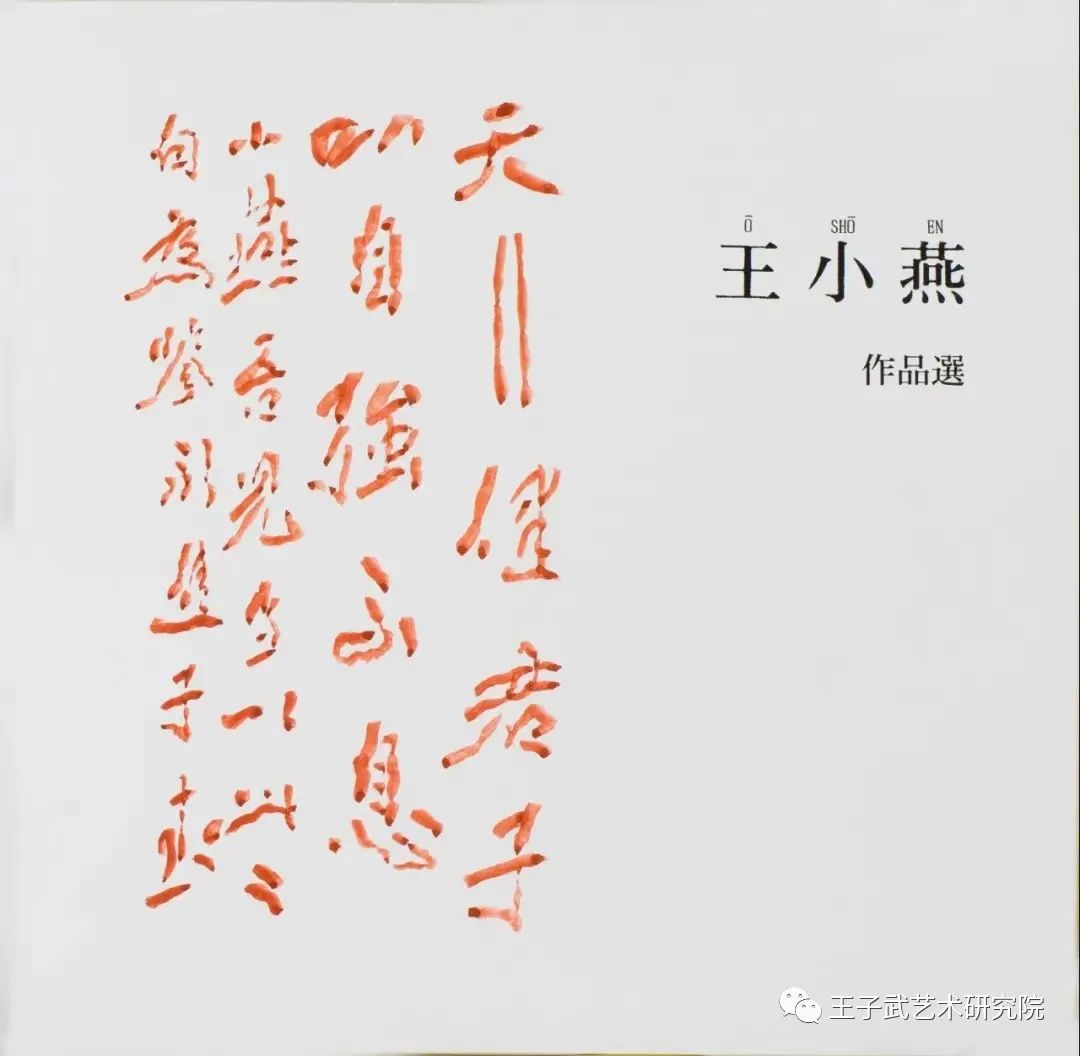 天行健君子
以自強不息
小燕吾兒当以此二
句為鑒進子武
Ō SHŌ EN
王小燕
作品選
王子武艺术研究院